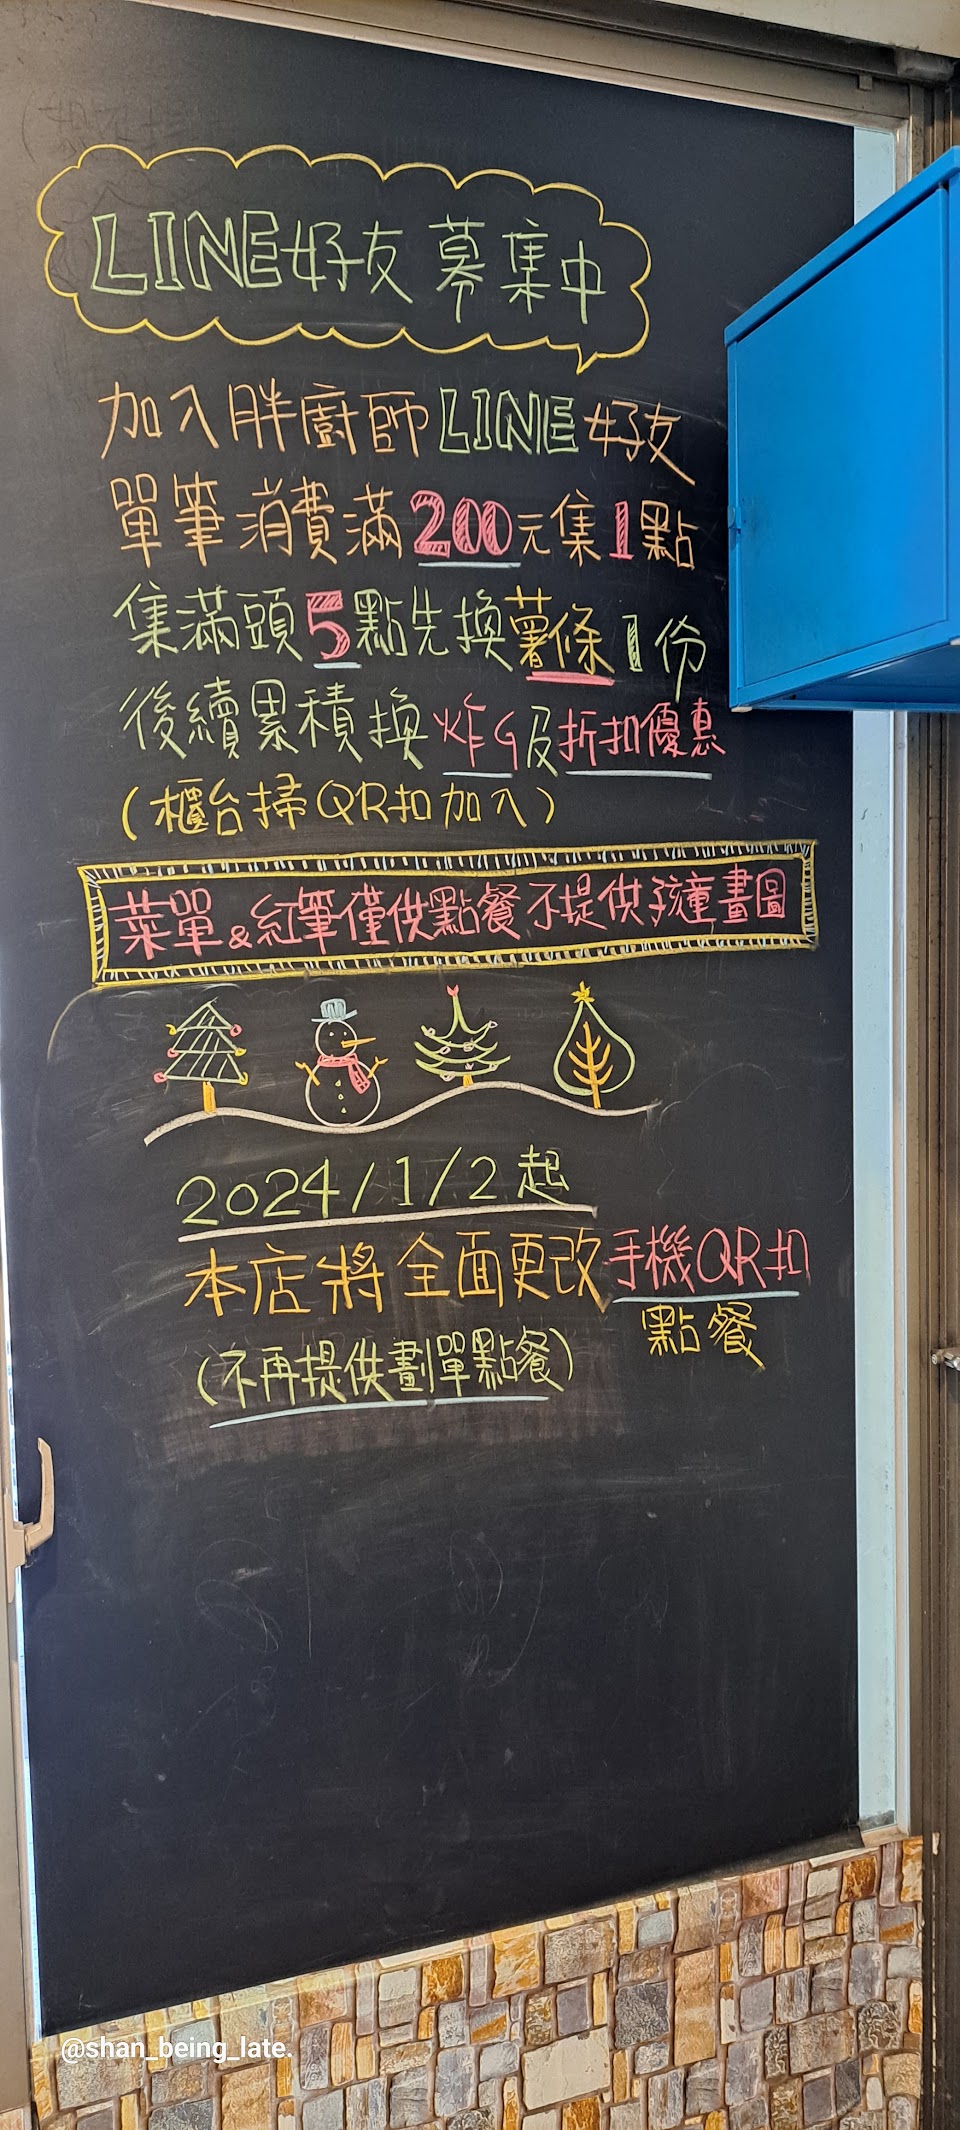 LINE好友募集中
加入胖廚師LINE好友
單筆消費滿200元集1點
集滿頭5點先換薯條1份
後續累積換炸G及折扣優惠
(櫃台掃QR扣加入)
菜單&紅筆僅供點餐不提供孩童畫圖
2024/1/2起
本店將全面更改手機QR扣
點餐
(不再提供劃單點餐)
@shan_being_late.